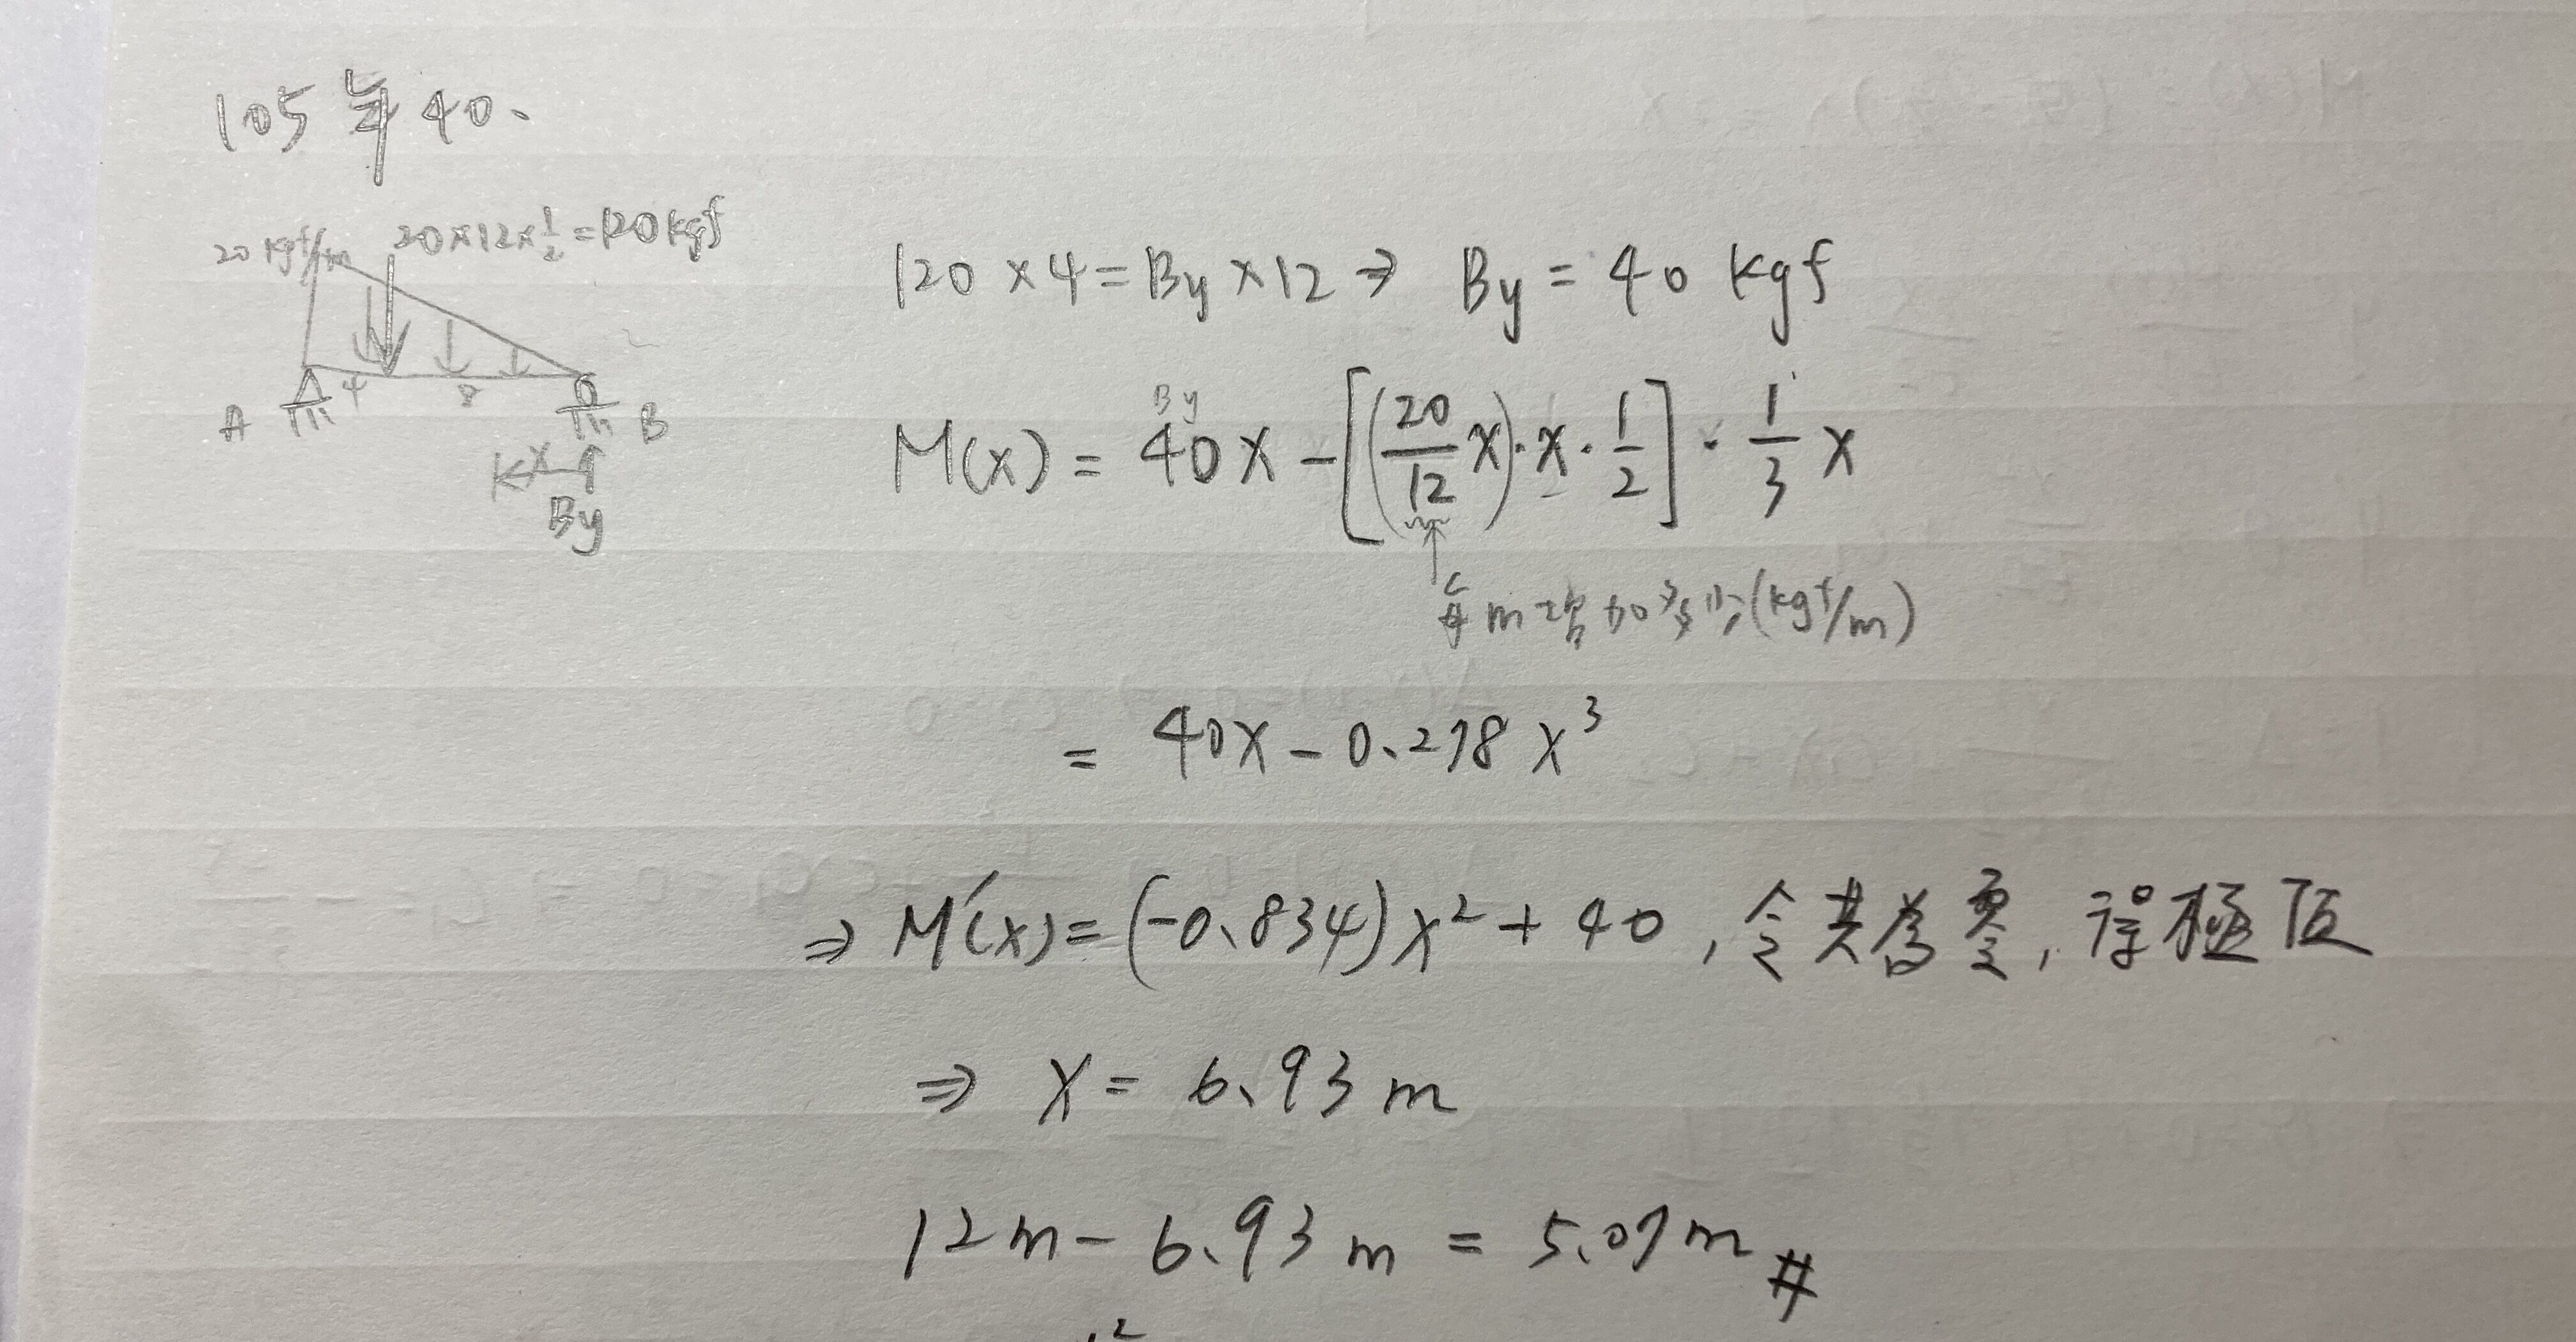 105年40、
20 kgf/m
20×12×1/2=120kgf
4 8
A B
x
By
120×4=By×12⇒ By=40 kgf
By
M(x)= 40x-[(20/12 x)·x·1/2]·1/3 x
每m增加多少(kgf/m)
= 40x-0.278x³
⇒ M'(x)=(-0.834)x²+40,令其為零,得極值
⇒ x= 6.93m
12m-6.93m = 5.07m #
2